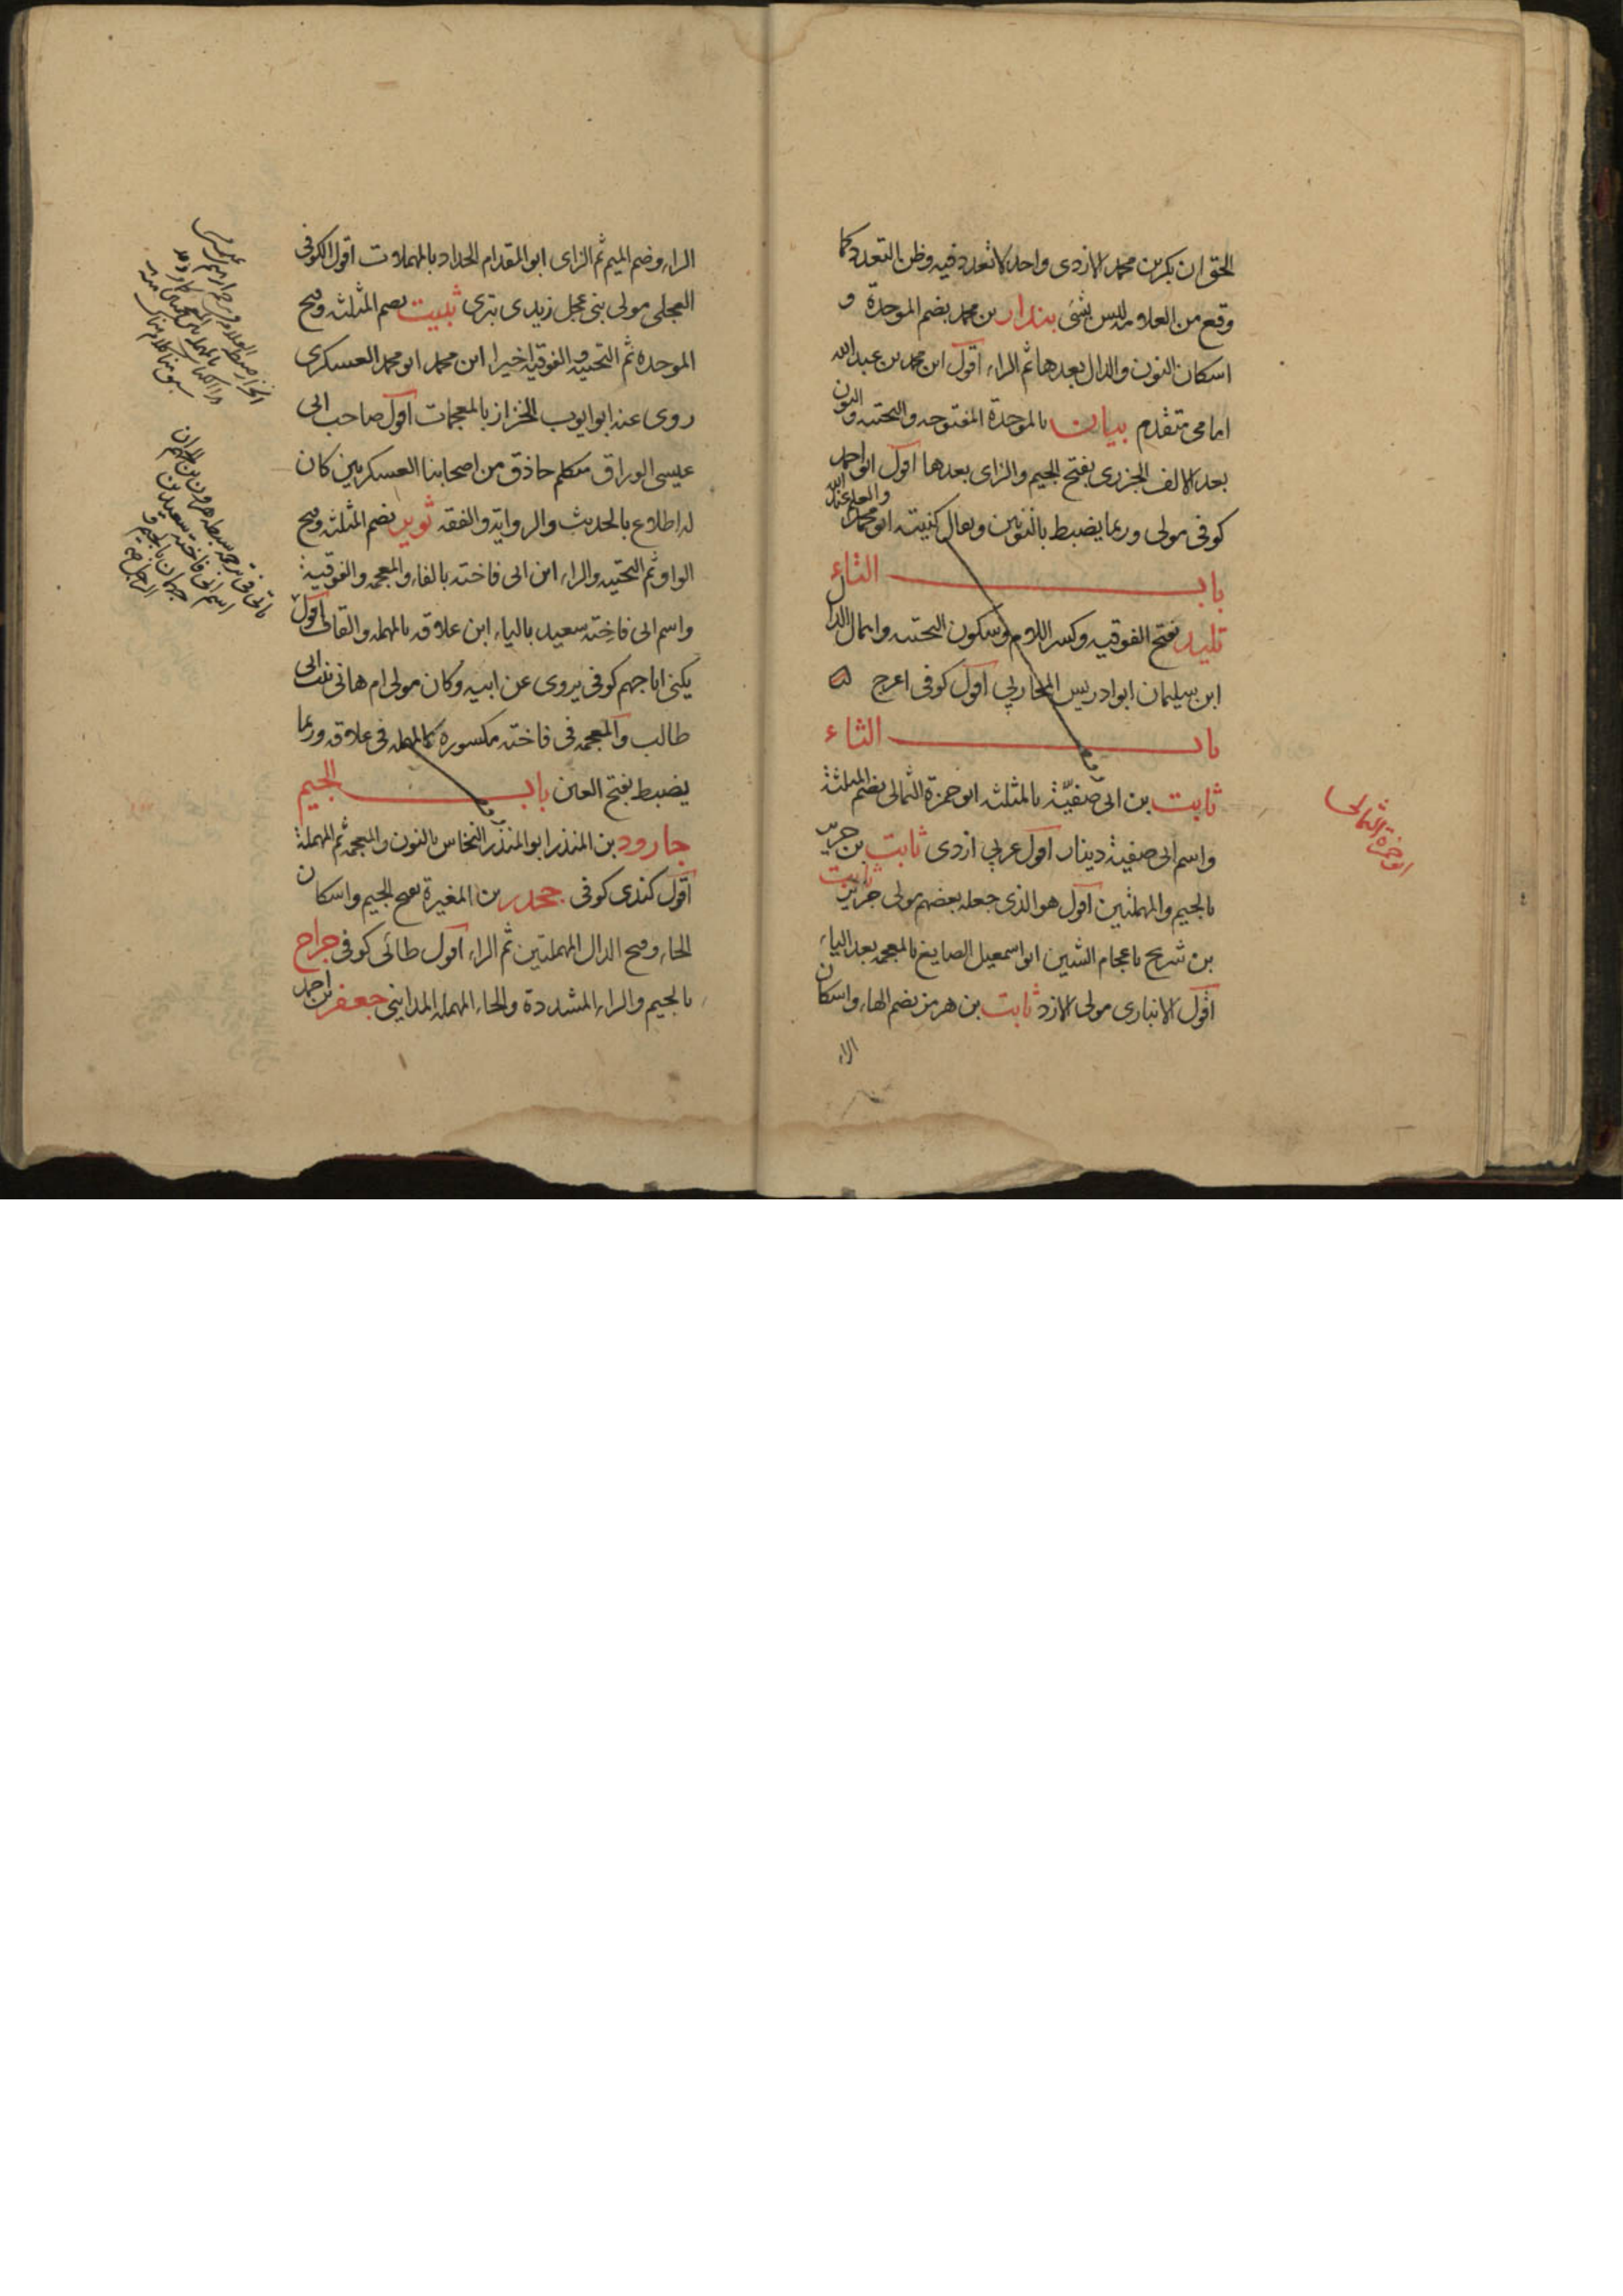 الحق ان بكر بن محمد الازدى واحد لا تعدد فيه وظن التعدد كما
وقع من العلامه ليس بشئ بندار بن محمد بضم الموحدة و
اسكان النون والدال بعدها ثم الراء اقول ابن محمد بن عبد الله
امامى متقدم بيان بالموحدة المفتوحه والتحتيه والنون
بعد الالف الجزرى بفتح الجيم والزاى بعدها اقول ابو احمد
كوفى مولى وربما يضبط بالنونين ويقال كنيته ابو محمد والعلم عند الله
باب التاء
تليد بفتح الفوقيه وكسر اللام وسكون التحتيه واهمال الدال
ابن سليمان ابو ادريس المحاربي اقول كوفى اعرج
باب الثاء
ثابت بن ابى صفيّة بالمثلثه ابو حمزة الثمالى بضم المثلثة
واسم ابى صفية دينار اقول عربي ازدى ثابت بن جرير
بالجيم والمهملتين اقول هو الذى جعله بعضهم مولى جرير ثابت
بن شريح باعجام الشين ابو اسمعيل الصايغ بالمعجمه بعد الياء
اقول الانبارى مولى الازد ثابت بن هرمز بضم الهاء واسكان
الراء
ابو حمزة الثمالى
الراء وضم الميم ثم الزاى ابو المقدام الحداد بالمهملات اقول الكوفى
العجلى مولى بنى عجل زيدى بترى ثبيت بضم المثلثه وفتح
الموحده ثم التحتيه والفوقيه اخيرا ابن محمد ابو محمد العسكرى
روى عنه ابو ايوب الخزاز بالمعجمات اقول صاحب ابى
عيسى الوراق متكلم حاذق من اصحابنا العسكريين كان
له اطلاع بالحديث والروايه والفقه ثوير بضم المثلثه وفتح
الواو ثم التحتيه والراء ابن ابى فاخته بالفاء والمعجمه والفوقية
واسم ابى فاخته سعيد بالياء ابن علاقه بالمهمله والقاف اقول
يكنى ابا جهم كوفى يروى عن ابيه وكان مولى ام هانى بنت ابى
طالب والمعجمه فى فاخته مكسوره كالمهمله فى علاقه وربما
يضبط بفتح العين باب الجيم
جارود بن المنذر ابو المنذر النخاس بالنون والمعجمه ثم المهملة
اقول كندى كوفى جحدر بن المغيرة بفتح الجيم واسكان
الحاء وفتح الدال المهملتين ثم الراء اقول طائى كوفى جراح
بالجيم والراء المشددة والحاء المهمله المداينى جعفر بن احمد
ياتى فى ترجمه سبطه هرون بن الجهم ان
اسم ابى فاخته سعيد بن
جهمان بالجيم و